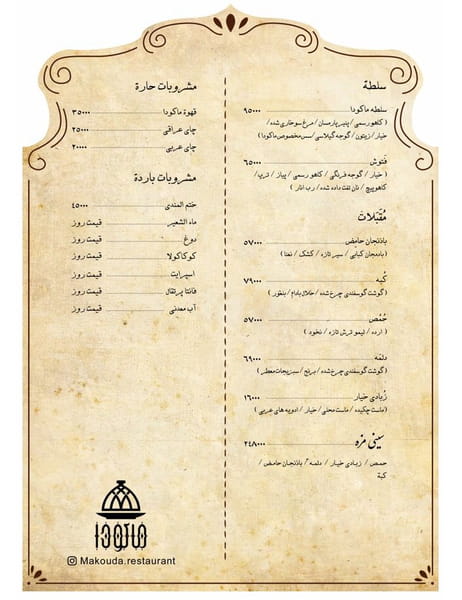 سلطة
سلطه ماكودا ۹۵۰۰۰
( کاهو رسمی / پنیر پارمسان / مرغ سوخاری شده /
خیار / زیتون / گوجه گیلاسی / سس مخصوص ماکودا )
فتوش ۶۵۰۰۰
( خیار / گوجه فرنگی / کاهو رسمی / پیاز / تربچه /
کاهوپیچ / نان تفت داده شده / رب انار )
مُقَبِّلات
باذنجان حامض ۵۷۰۰۰
( بادمجان کبابی / سیر تازه / کشک / نعنا )
کُبه ۷۹۰۰۰
( گوشت گوسفندی چرخ شده / خلال بادام / بلغور )
حُمُص ۵۷۰۰۰
( ارده / لیمو ترش تازه / نخود )
دلمه ۶۹۰۰۰
( گوشت گوسفندی چرخ شده / برنج / سبزیجات معطر )
زبادی خیار ۱۶۰۰۰
( ماست چکیده / ماست محلی / خیار / ادویه های عربی )
سینی مزه ۲۴۸۰۰۰
حمص / زبادی خیار / دلمه / باذنجان حامض /
کبة
مشروبات حارة
قهوة ماکودا ۳۵۰۰۰
چای عراقی ۲۵۰۰۰
چای عربی ۲۰۰۰۰
مشروبات باردة
ختم المندی ۴۵۰۰۰
ماء الشعیر قیمت روز
دوغ قیمت روز
کوکاکولا قیمت روز
اسپرایت قیمت روز
فانتا پرتقال قیمت روز
آب معدنی قیمت روز
ماکودا
Makouda.restaurant